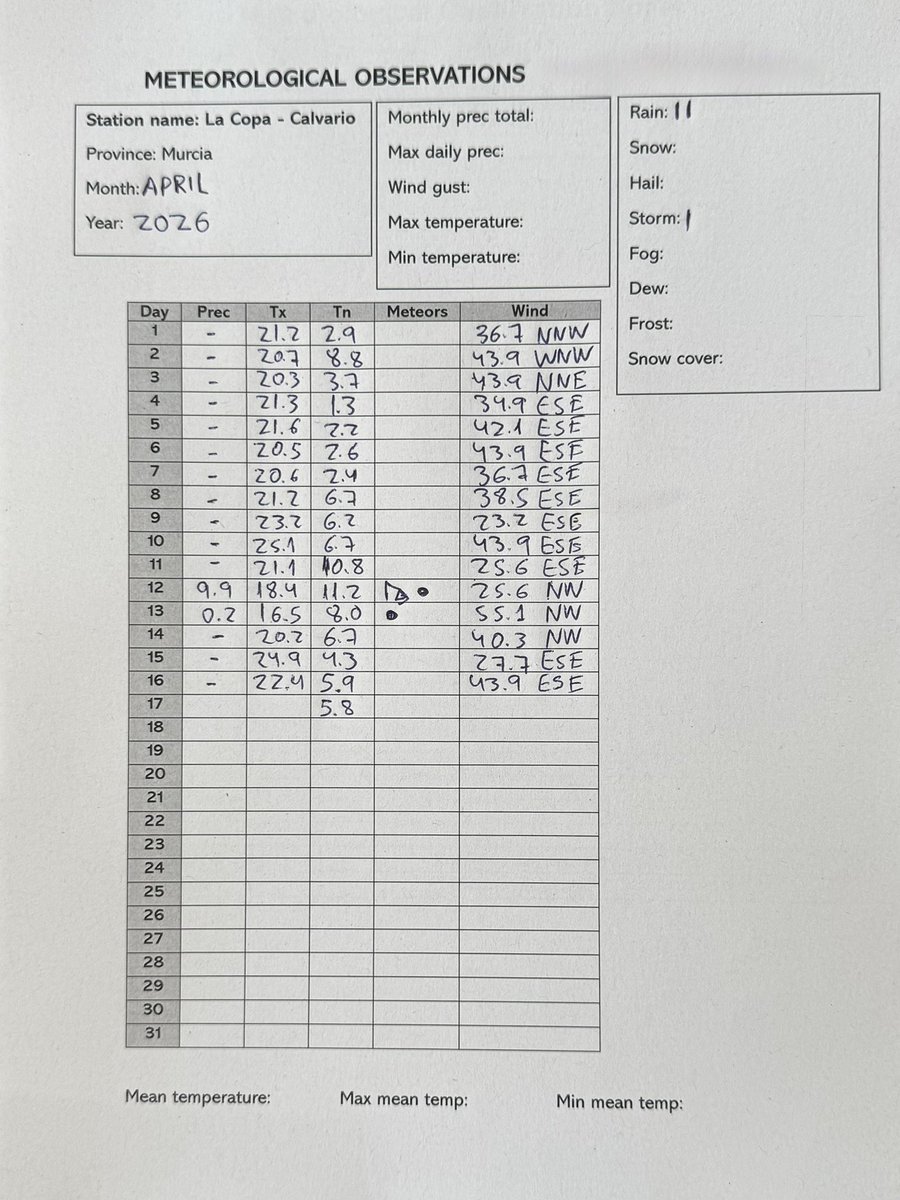 METEOROLOGICAL OBSERVATIONS
Station name: La Copa - Calvario
Province: Murcia
Month: APRIL
Year: 2026
Monthly prec total:
Max daily prec:
Wind gust:
Max temperature:
Min temperature:
Rain: II
Snow:
Hail:
Storm: I
Fog:
Dew:
Frost:
Snow cover:
Day Prec Tx Tn Meteors Wind
1 - 21.2 2.9 36.7 NNW
2 - 20.7 8.8 43.9 WNW
3 - 20.3 3.7 43.9 NNE
4 - 21.3 1.3 34.9 ESE
5 - 21.6 2.2 42.1 ESE
6 - 20.5 2.6 43.9 ESE
7 - 20.6 2.4 36.7 ESE
8 - 21.2 6.7 38.5 ESE
9 - 23.2 6.2 23.2 ESE
10 - 25.1 6.7 43.9 ESE
11 - 21.1 10.8 25.6 ESE
12 9.9 18.4 11.2 25.6 NW
13 0.2 16.5 8.0 55.1 NW
14 - 20.2 6.7 40.3 NW
15 - 24.9 4.3 27.7 ESE
16 - 22.4 5.9 43.9 ESE
17 5.8
18
19
20
21
22
23
24
25
26
27
28
29
30
31
Mean temperature: Max mean temp: Min mean temp: